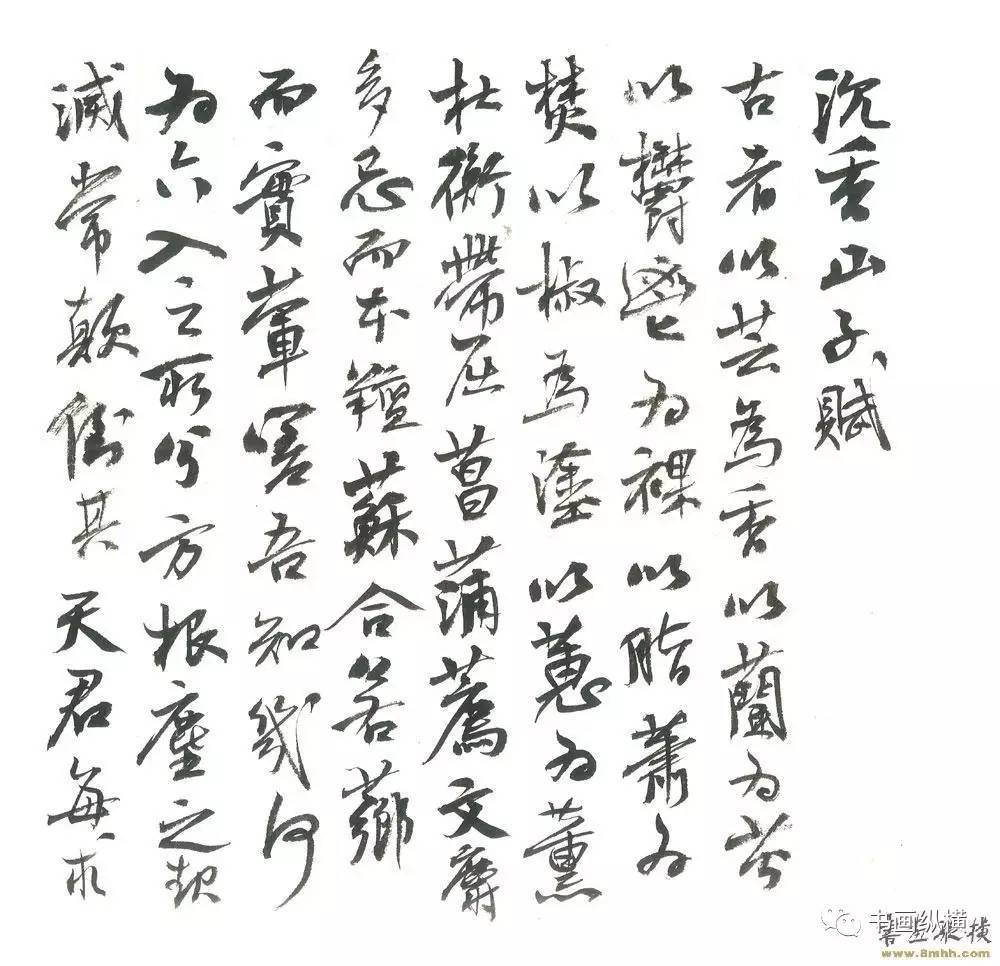 沉香山子賦
古者以芸為香以蘭为芬
以鬱鬯为祼以脂蕭为
焚以椒為塗以蕙为薰
杜衡帶屈菖蒲薦文麝
多忌而本羶蘇合若薌
而實葷嗟吾知幾何
为六入之所分方根塵之起
滅常顛倒其天君每求
书画纵横
書畫縱橫
www.8mhh.com